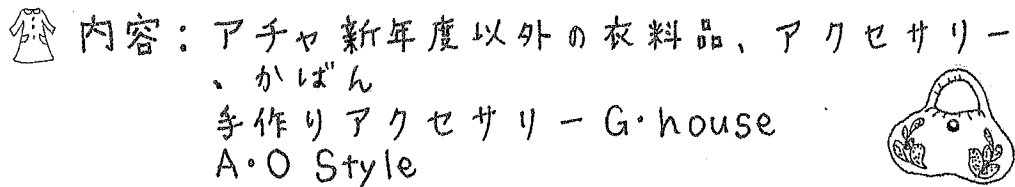 内容：アチャ新年度以外の衣料品、アクセサリー
、かばん
手作りアクセサリーG・house
A・O Style